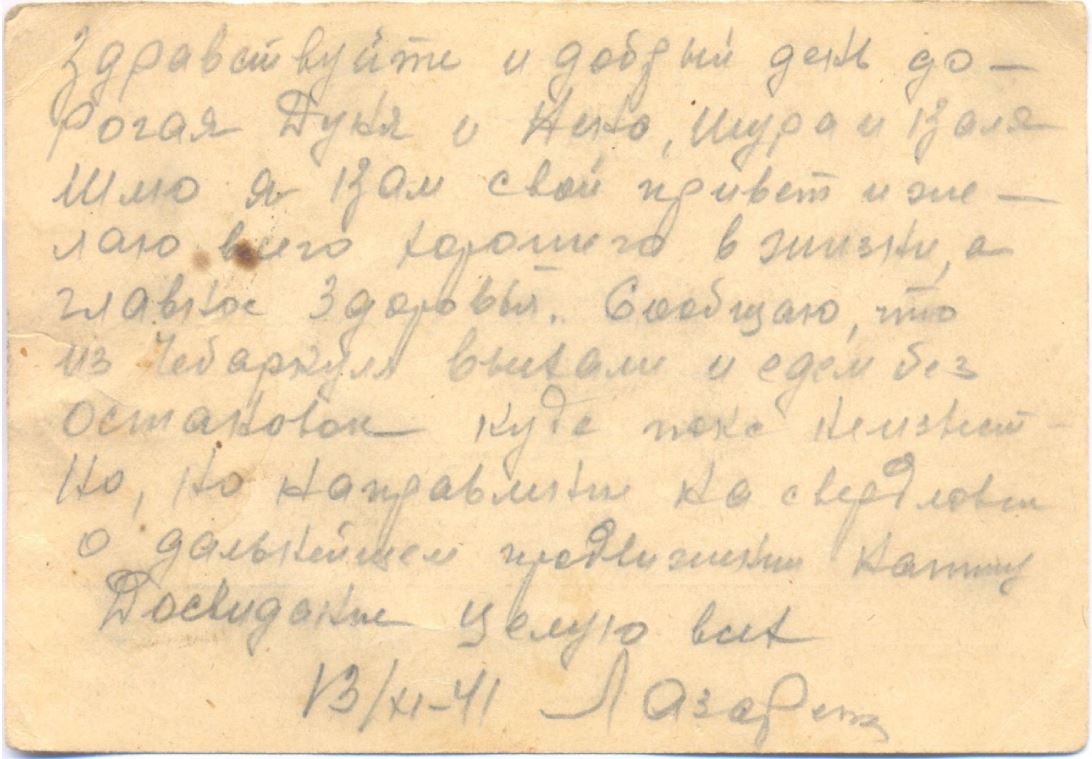 Здравствуйте и добрый день до-
рогая Дуня и Нина, Шура и Валя
Шлю я Вам свой привет и же-
лаю всего хорошего в жизни, а
главное здоровья. Сообщаю, что
из Чебаркуля выехали и едем без
остановок куда пока неизвест-
но, но направление на свердловск
о дальнейшем продвижении напишу
Досвидание целую всех
13/XI-41